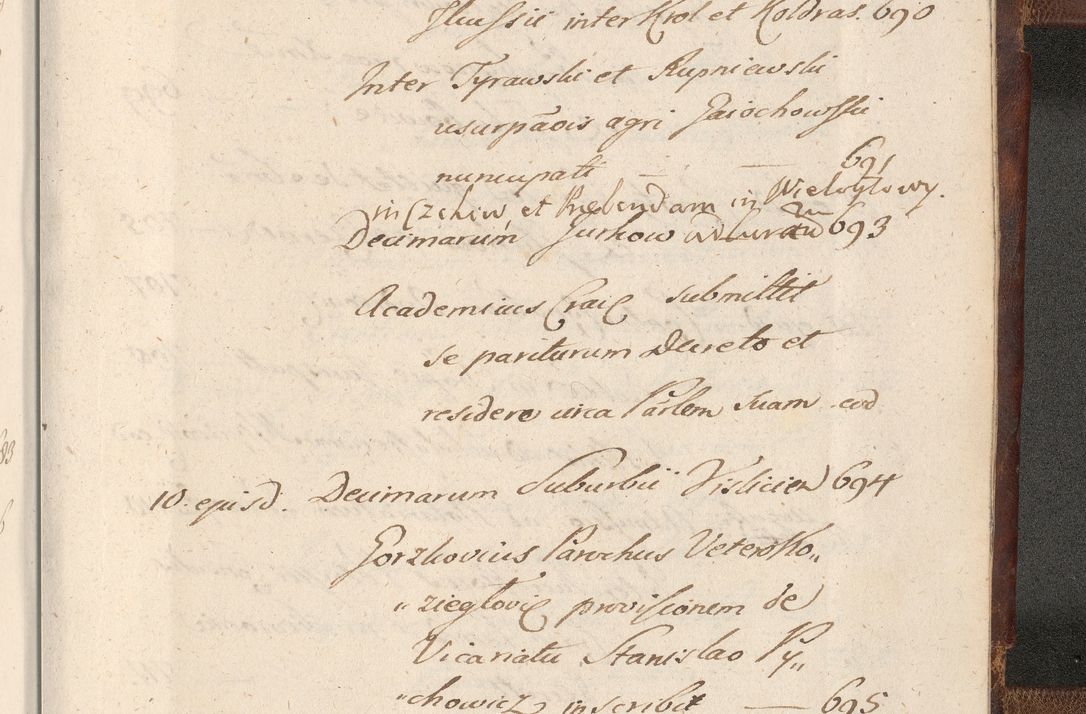 inter Krol et Koldras. 690
Inter Tyrawski et Rupniewski
usurpãois agri Gaiochowssii
nuncupati — 691
in Czchow et Præbendam in Wielogłowy.
Decimarum Jurkow 693
Academicus Crac submittit
se pariturum Decreto et
residere circa Partem suam eod
10. episd. Decimarum Suburbii Vislicien 694
Gorzkovius Parochus Vetero Ko„
„ziegłovic provisionem de
Vicariatu Stanislao Py„
„chowicz inscribit — 695
83
6